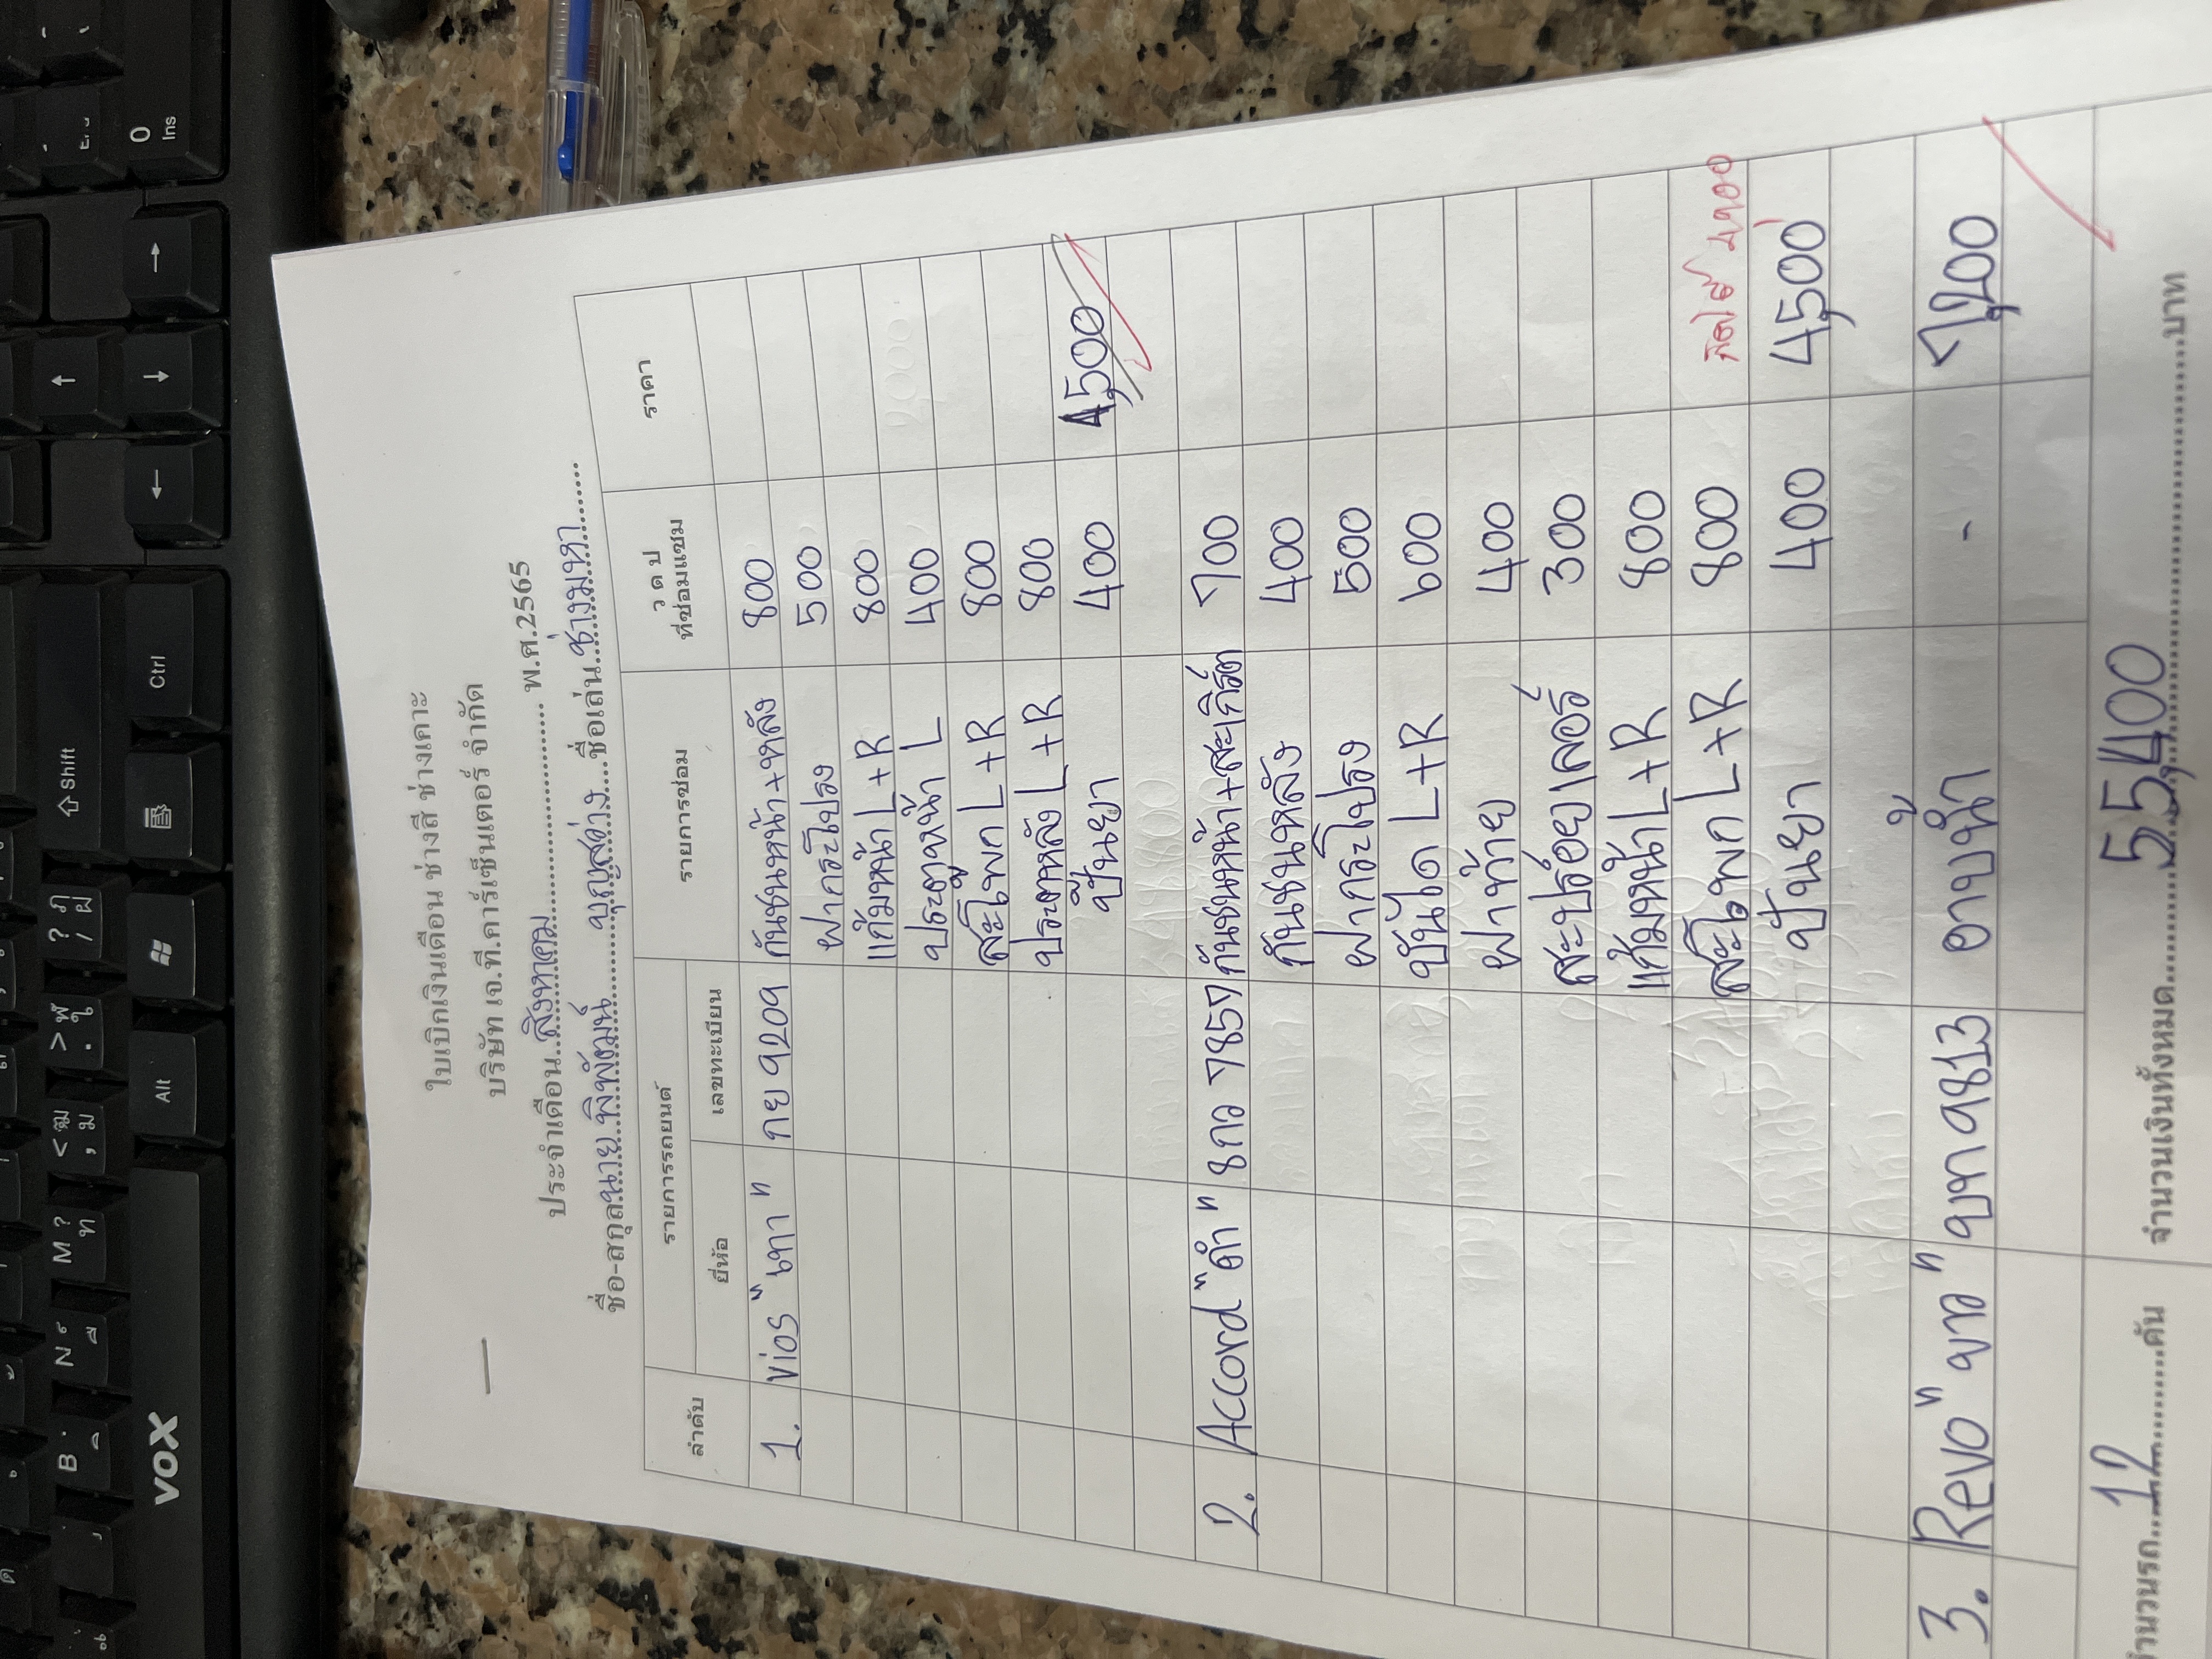 ใบเบิกเงินเดือน ช่างสี ช่างเคาะ
บริษัท เจ.ที.คาร์เซ็นเตอร์ จำกัด
ประจำเดือน..สิงหาคม.......................... พ.ศ.2565
ชื่อ-สกุล..นาย พิพัฒน์.......... บุญสว่าง....ชื่อเล่น..ช่างมหา.......
ลำดับ รายการรถยนต์ รายการซ่อม ว ด ป ที่ซ่อมแซม ราคา
ยี่ห้อ เลขทะเบียน
1. Vios "เทา" กย 9209 กันชนหน้า+หลัง 800
ฝากระโปรง 500
แก้มหน้า L+R 800
ประตูหน้า L 400
สะโพก L+R 800
ประตูหลัง L+R 800
ปั้นยา 400 4,500
2. Accord "ดำ" 8กว 7857 กันชนหน้า+สะเกิร์ต 700
กันชนหลัง 400
ฝากระโปรง 500
บันได L+R 600
ฝาท้าย 400
สะปร์อยเลอร์ 300
แก้มหน้า L+R 800
สะโพก L+R 800 4900
ปั้นยา 400 4,500
3. Revo "ขาว" บท 9813 อาบน้ำ - 7,200
จำนวนรถ....12..........คัน จำนวนเงินทั้งหมด............55,400..............................บาท
VOX
Alt
Ctrl
Shift
0
Ins
B
N
M ?
ท
< ฒ
, ม
> ฬ
. ใ
? ฦ
/ ฝ